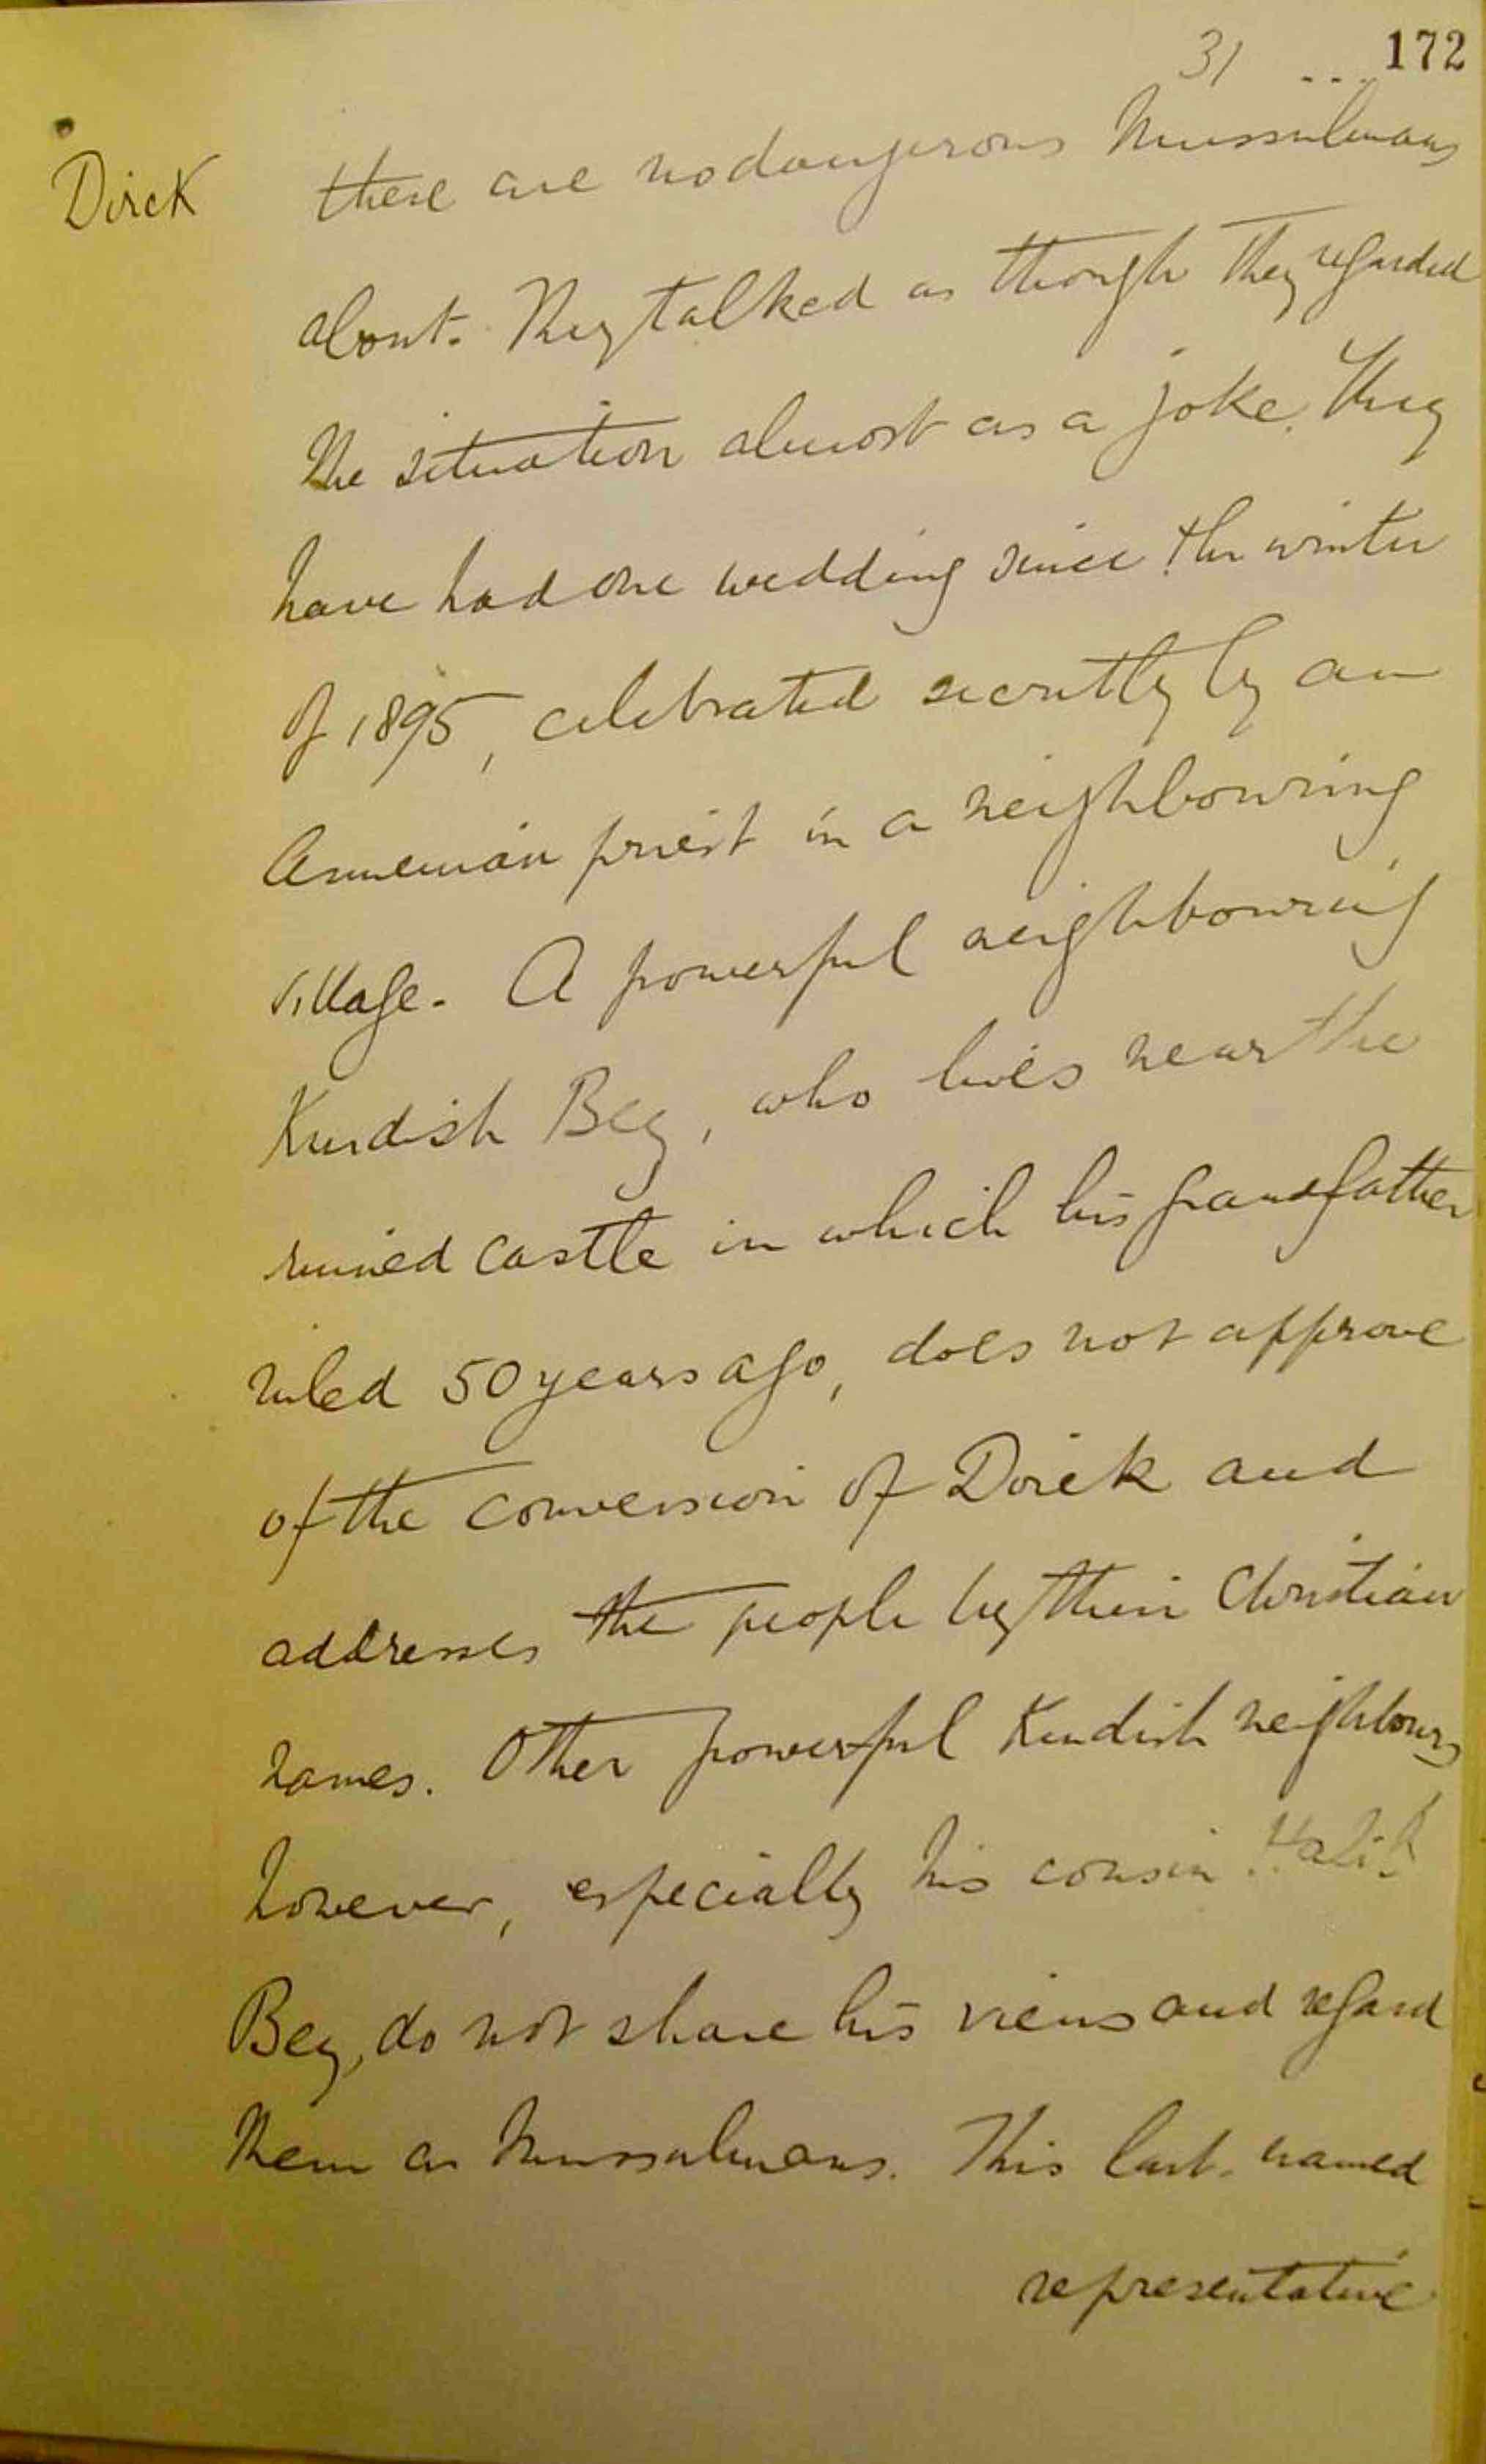 31 ... 172
Dirck
there are no dangerous Mussulmans
about. They talked as though they regarded
the situation almost as a joke. They
have had one wedding since the winter
of 1895, celebrated secretly by an
Armenian priest in a neighbouring
village. A powerful neighbouring
Kurdish Beg, who lives near the
ruined castle in which his grandfather
ruled 50 years ago, does not approve
of the conversion of Dirck and
addresses the people by their Christian
names. Other powerful Kurdish neighbours
however, especially his cousin
Beg, do not share his views and regard
them as Mussulmans. This last-named
representative